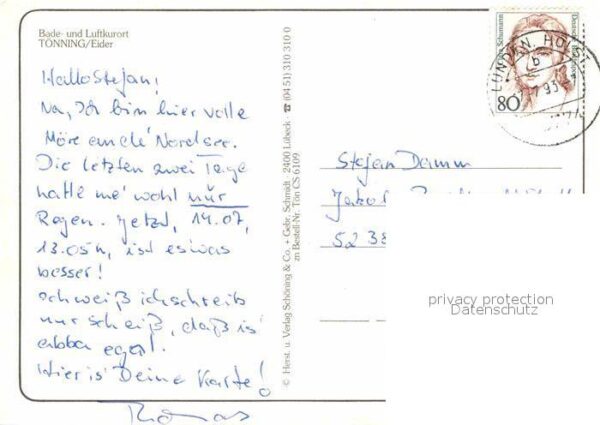 Bade- und Luftkurort
TÖNNING/Eider
Hallo Stefan!
Na, Ich bin hier volle
Möre an de' Nordsee.
Die letzten zwei Tage
hatte me' wohl nur
Regen. Jetzt, 14.07,
13.05h, ist es was
besser!
Ich weiß ich schreib
nur scheiß, daß is'
abba egal.
Hier is' Deine Karte!
Thomas
© Herst. u. Verlag Schöning & Co. + Gebr. Schmidt · 2400 Lübeck · ☎ (04 51) 310 310 0
zu Bestell-Nr. Tön CS 6109
Schumann
Deutsche Bundespost
80
LUNDEN, HOLST
b
Stefan Damm
Jakob
5238
privacy protection
Datenschutz